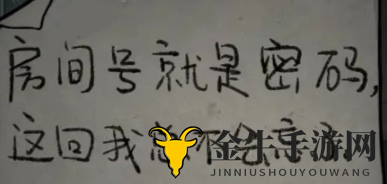 房间号就是密码,
这回我总不会忘
金牛手游网
JINNIUSHOUYOUWANG